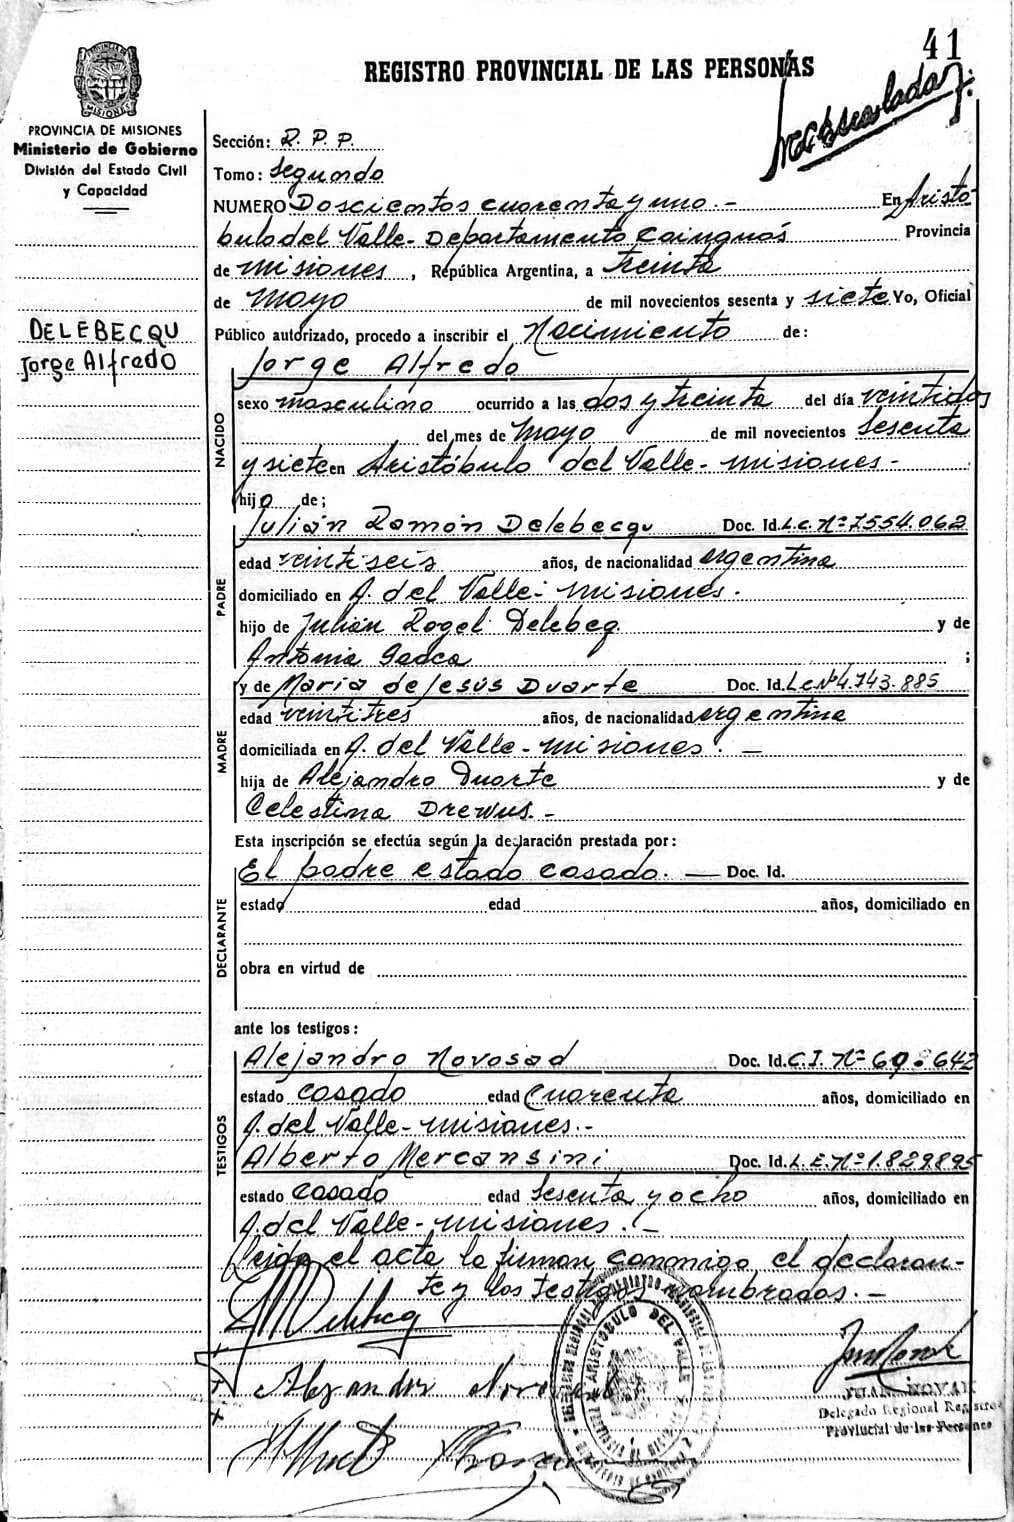 41
REGISTRO PROVINCIAL DE LAS PERSONAS
PROVINCIA DE MISIONES
Ministerio de Gobierno
División del Estado Civil
y Capacidad
Sección: R. P. P.
Tomo: Segundo
NUMERO Doscientos cuarenta y uno.- En Aristó
bulo del Valle- Departamento Cainguás Provincia
de Misiones, República Argentina, a treinta
de Mayo de mil novecientos sesenta y siete Yo, Oficial
Público autorizado, procedo a inscribir el Nacimiento de:
DELEBECQU
Jorge Alfredo
Jorge Alfredo
NACIDO
sexo masculino ocurrido a las dos y treinta del día veintidos
del mes de Mayo de mil novecientos Sesenta
y siete en Aristóbulo del Valle- Misiones-
hijo de;
PADRE
Julián Ramón Delebecqu Doc. Id. L.C. Nº 7554.062
edad veintiseis años, de nacionalidad argentina
domiciliado en A. del Valle- Misiones.
hijo de Julián Rogel Delebeq y de
Antonia ;
MADRE
y de María de Jesús Duarte Doc. Id. L.C. Nº 4.743.885
edad veintitres años, de nacionalidad argentina
domiciliada en A. del Valle- Misiones. -
hija de Alejandro Duarte y de
Celestina Drewus.-
Esta inscripción se efectúa según la declaración prestada por:
DECLARANTE
El padre estado casado. — Doc. Id.
estado edad años, domiciliado en
obra en virtud de
ante los testigos:
TESTIGOS
Alejandro Novosad Doc. Id. C.I. Nº 69.642
estado Casado edad Cuarenta años, domiciliado en
A. del Valle- Misiones.-
Alberto Mercansini Doc. Id. L.E. Nº 1.829.895
estado Casado edad Sesenta y ocho años, domiciliado en
A. del Valle- Misiones. -
Leida el acta la firman conmigo el declaran-
te y los testigos nombrados. -
ARISTOBULO DEL VALLE
JUAN NOVAK
Delegado Regional Registro
Provincial de las Personas